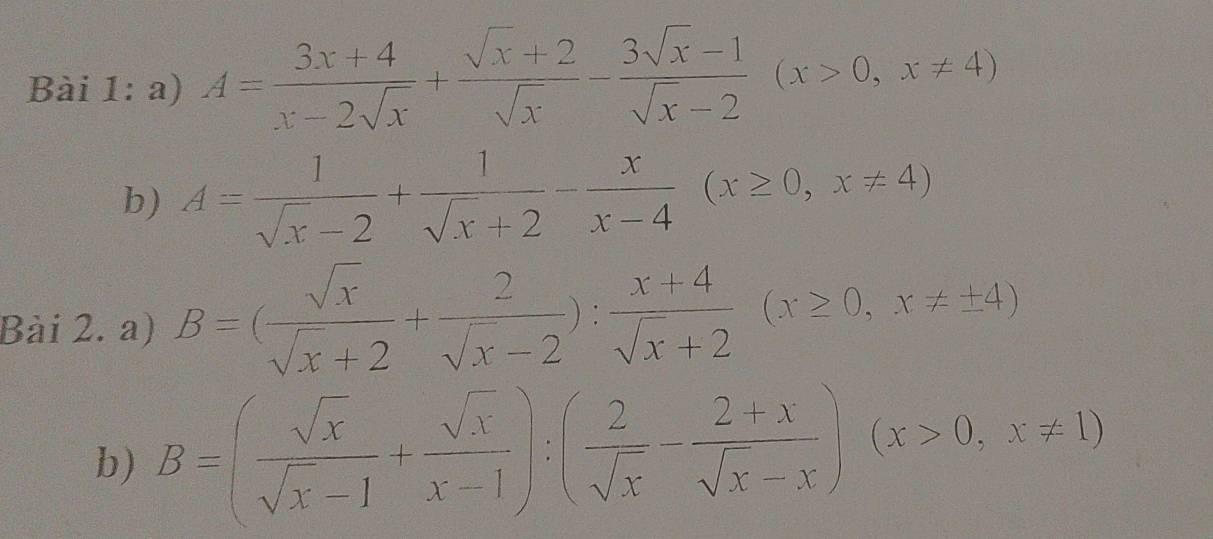 Bài 1: a) $A = \frac{3x+4}{x-2\sqrt{x}} + \frac{\sqrt{x}+2}{\sqrt{x}} - \frac{3\sqrt{x}-1}{\sqrt{x}-2}$ $(x > 0, x \neq 4)$
b) $A = \frac{1}{\sqrt{x}-2} + \frac{1}{\sqrt{x}+2} - \frac{x}{x-4}$ $(x \geq 0, x \neq 4)$
Bài 2. a) $B = (\frac{\sqrt{x}}{\sqrt{x}+2} + \frac{2}{\sqrt{x}-2}) : \frac{x+4}{\sqrt{x}+2}$ $(x \geq 0, x \neq \pm 4)$
b) $B = \left(\frac{\sqrt{x}}{\sqrt{x}-1} + \frac{\sqrt{x}}{x-1}\right) : \left(\frac{2}{\sqrt{x}} - \frac{2+x}{\sqrt{x}-x}\right)$ $(x > 0, x \neq 1)$